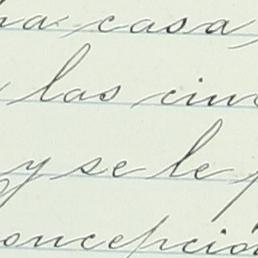 ha casa
las cinc
y se le p
oncepción